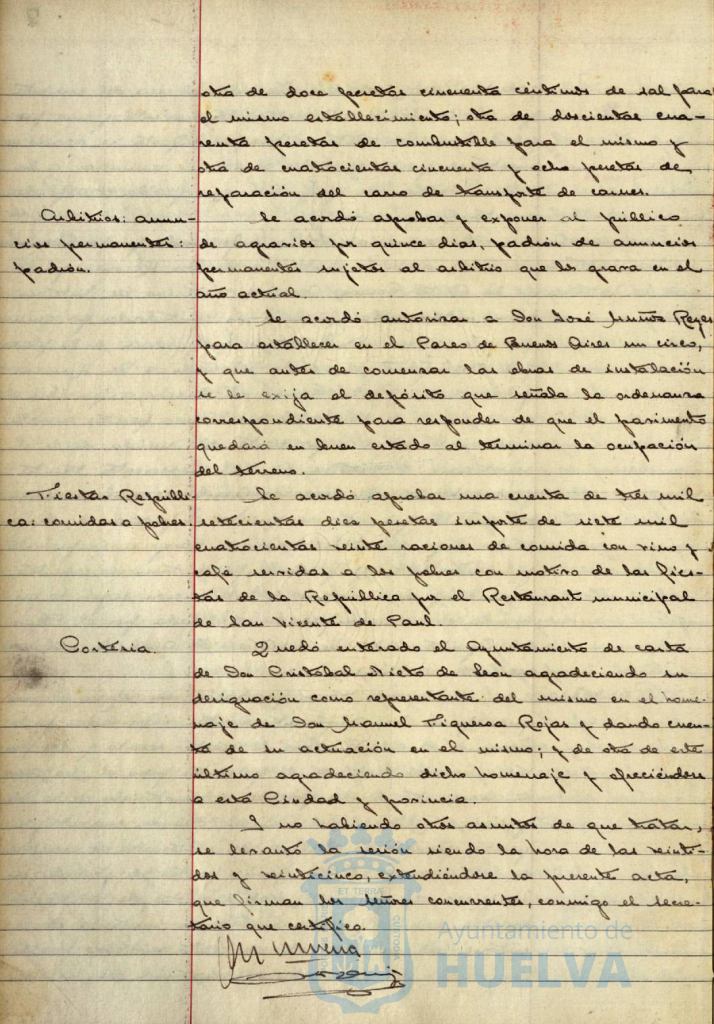 otra de doce pesetas cincuenta céntimos de sal para
el mismo establecimiento; otra de doscientas cua-
renta pesetas de combustible para el mismo y
otra de cuatrocientas cincuenta y ocho pesetas de
reparación del carro de transporte de carnes.
Arbitrios: anun-
cios permanentes:
padrón.
Se acordó aprobar y exponer al público
de agravios por quince dias, padrón de anuncios
permanentes sujetos al arbitrio que los grava en el
año actual.
Se acordó autorizar a Don José Muñoz Reyes
para establecer en el Paseo de Buenos Aires un circo,
y que antes de comenzar las obras de instalación
se le exija el depósito que señala la ordenanza
correspondiente para responder de que el pavimento
quedará en buen estado al terminar la ocupación
del terreno.
Fiestas Repúbli-
ca: comidas a pobres.
Se acordó aprobar una cuenta de tres mil
setecientas diez pesetas importe de siete mil
cuatrocientas veinte raciones de comida con vino y
café servidas a los pobres con motivo de las fies-
tas de la República por el Restaurant municipal
de San Vicente de Paul.
Cortesia.
Quedó enterado el Ayuntamiento de carta
de Don Cristóbal Nieto de Leon agradeciendo su
designación como representante del mismo en el home-
naje de Don Manuel Figueroa Rojas y dando cuen-
ta de su actuación en el mismo; y de otra de este
último agradeciendo dicho homenaje y ofreciéndose
a esta Ciudad y provincia.
Y no habiendo otros asuntos de que tratar,
se levantó la sesión siendo la hora de las veinti-
dos y veinticinco, extendiéndose la presente acta,
que firman los señores concurrentes, conmigo el secre-
tario que certifico.
ET TERRÆ
Ayuntamiento de
HUELVA